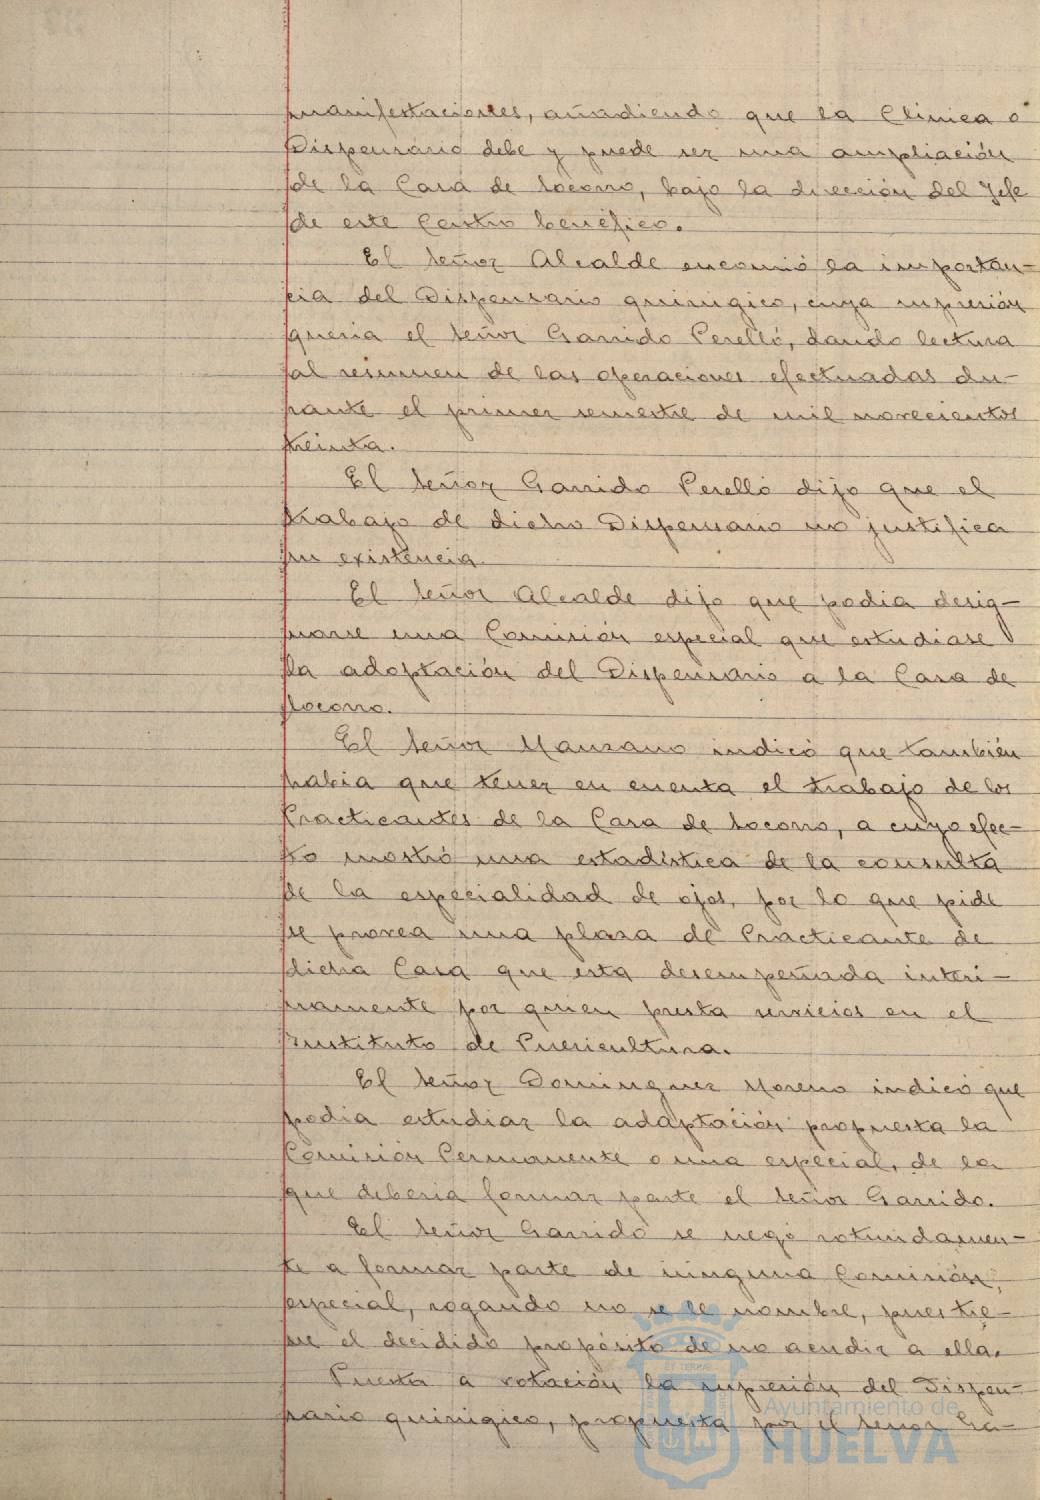 manifestaciones, añadiendo que la Clínica o
Dispensario debe y puede ser una ampliación
de la Casa de Socorro, bajo la dirección del Jefe
de este Centro benéfico.
El Señor Alcalde encomió la importan-
cia del Dispensario quirúgico, cuya supresión
quería el Señor Garrido Perelló, dando lectura
al resumen de las operaciones efectuadas du-
rante el primer semestre de mil novecientos
treinta.
El Señor Garrido Perelló dijo que el
trabajo de dicho Dispensario no justifica
su existencia.
El Señor Alcalde dijo que podia desig-
narse una Comisión especial que estudiase
la adoptación del Dispensario a la Casa de
Socorro.
El Señor Manzano indicó que también
había que tener en cuenta el trabajo de los
Practicantes de la Casa de Socorro, a cuyo efec-
to mostró una estadística de la consulta
de la especialidad de ojos, por lo que pide
se provea una plaza de Practicante de
dicha Casa que esta desempeñada interi-
namente por quien presta servicios en el
Instituto de Puericultura.
El Señor Dominguez Moreno indicó que
podia estudiar la adaptación propuesta la
Comisión Permanente o una especial, de la
que deberia formar parte el Señor Garrido.
El Señor Garrido se negó rotundamen-
te a formar parte de ninguna Comisión,
especial, rogando no se le nombre, pues tie-
ne el decidido propósito de no acudir a ella.
Puesta a votación la supresión del Dispen-
sario quirúgico, propuesta por el Señor Ga-
Ayuntamiento de
HUELVA